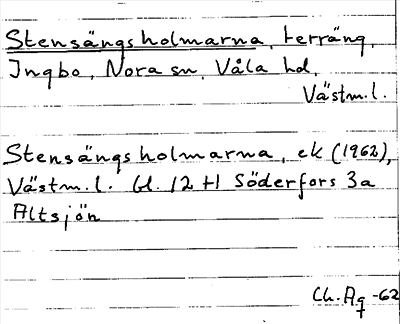 Stensängsholmarna, terräng,
Ingbo, Nora sn, Våla hd,
Västm.l.
Stensängsholmarna, ek (1962),
Västm.l. bl. 12 H Söderfors 3a
Altsjön
Ch. Aq -62